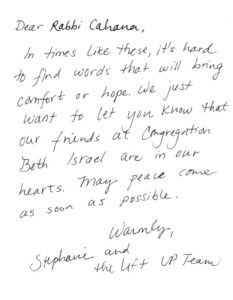 Dear Rabbi Cahana,
In times like these, it's hard
to find words that will bring
comfort or hope. We just
want to let you know that
our friends at Congregation
Beth Israel are in our
hearts. May peace come
as soon as possible.
Warmly,
Stephanie and
the Lift UP Team